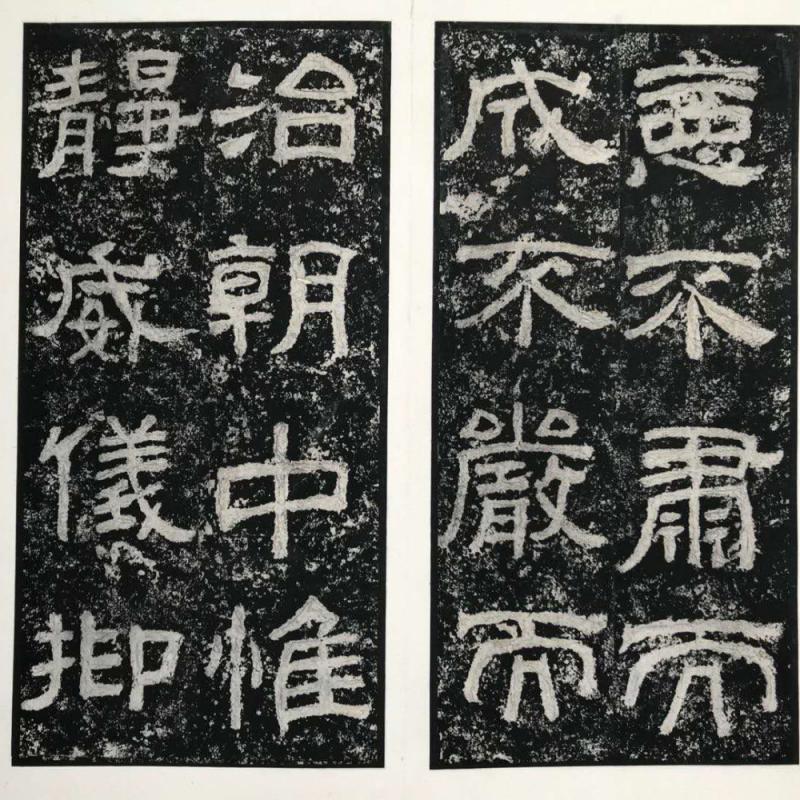 惡不肅而
成不嚴而
治朝中惟
靜威儀抑